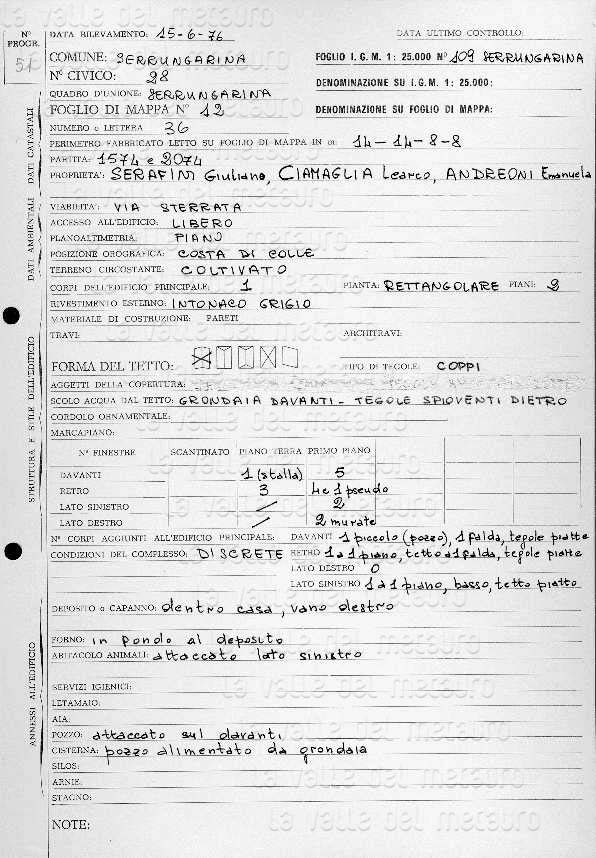 N° PROGR. 51
DATA RILEVAMENTO: 15-6-76 DATA ULTIMO CONTROLLO:
COMUNE: SERRUNGARINA FOGLIO I.G.M. 1: 25.000 N° 109 SERRUNGARINA
N° CIVICO: 28 DENOMINAZIONE SU I.G.M. 1: 25.000:
QUADRO D'UNIONE: SERRUNGARINA
FOGLIO DI MAPPA N° 12 DENOMINAZIONE SU FOGLIO DI MAPPA:
NUMERO o LETTERA 36
PERIMETRO FABBRICATO LETTO SU FOGLIO DI MAPPA IN m 14-14-8-8
PARTITA: 1574 e 2074
PROPRIETA': SERAFINI Giuliano, CIAMAGLIA Learco, ANDREONI Emanuela
VIABILITA': VIA STERRATA
ACCESSO ALL'EDIFICIO: LIBERO
PLANOALTIMETRIA: PIANO
POSIZIONE OROGRAFICA: COSTA DI COLLE
TERRENO CIRCOSTANTE: COLTIVATO
CORPI DELL'EDIFICIO PRINCIPALE: 1 PIANTA: RETTANGOLARE PIANI: 2
RIVESTIMENTO ESTERNO: INTONACO GRIGIO
MATERIALE DI COSTRUZIONE: PARETI
TRAVI: ARCHITRAVI:
FORMA DEL TETTO: TIPO DI TEGOLE: COPPI
AGGETTI DELLA COPERTURA:
SCOLO ACQUA DAL TETTO: GRONDAIA DAVANTI - TEGOLE SPIOVENTI DIETRO
CORDOLO ORNAMENTALE:
MARCAPIANO:
N° FINESTRE SCANTINATO PIANO TERRA PRIMO PIANO
DAVANTI 1 (stalla) 5
RETRO 3 4 e 1 pseudo
LATO SINISTRO / 2
LATO DESTRO / 2 murate
N° CORPI AGGIUNTI ALL'EDIFICIO PRINCIPALE: DAVANTI 1 piccolo (pozzo), 1 falda, tegole piatte
CONDIZIONI DEL COMPLESSO: DISCRETE RETRO 1 a 1 piano, tetto a 1 falda, tegole piatte
LATO DESTRO 0
LATO SINISTRO 1 a 1 piano, basso, tetto piatto
DEPOSITO o CAPANNO: dentro casa, vano destro
FORNO: in fondo al deposito
ABITACOLO ANIMALI: attaccato lato sinistro
SERVIZI IGIENICI:
LETAMAIO:
AIA:
POZZO: attaccato sul davanti
CISTERNA: pozzo alimentato da grondaia
SILOS:
ARNIE:
STAGNO:
NOTE:
DATI CATASTALI
DATI AMBIENTALI
STRUTTURA E STILE DELL'EDIFICIO
ANNESSI ALL'EDIFICIO
La valle del metauro